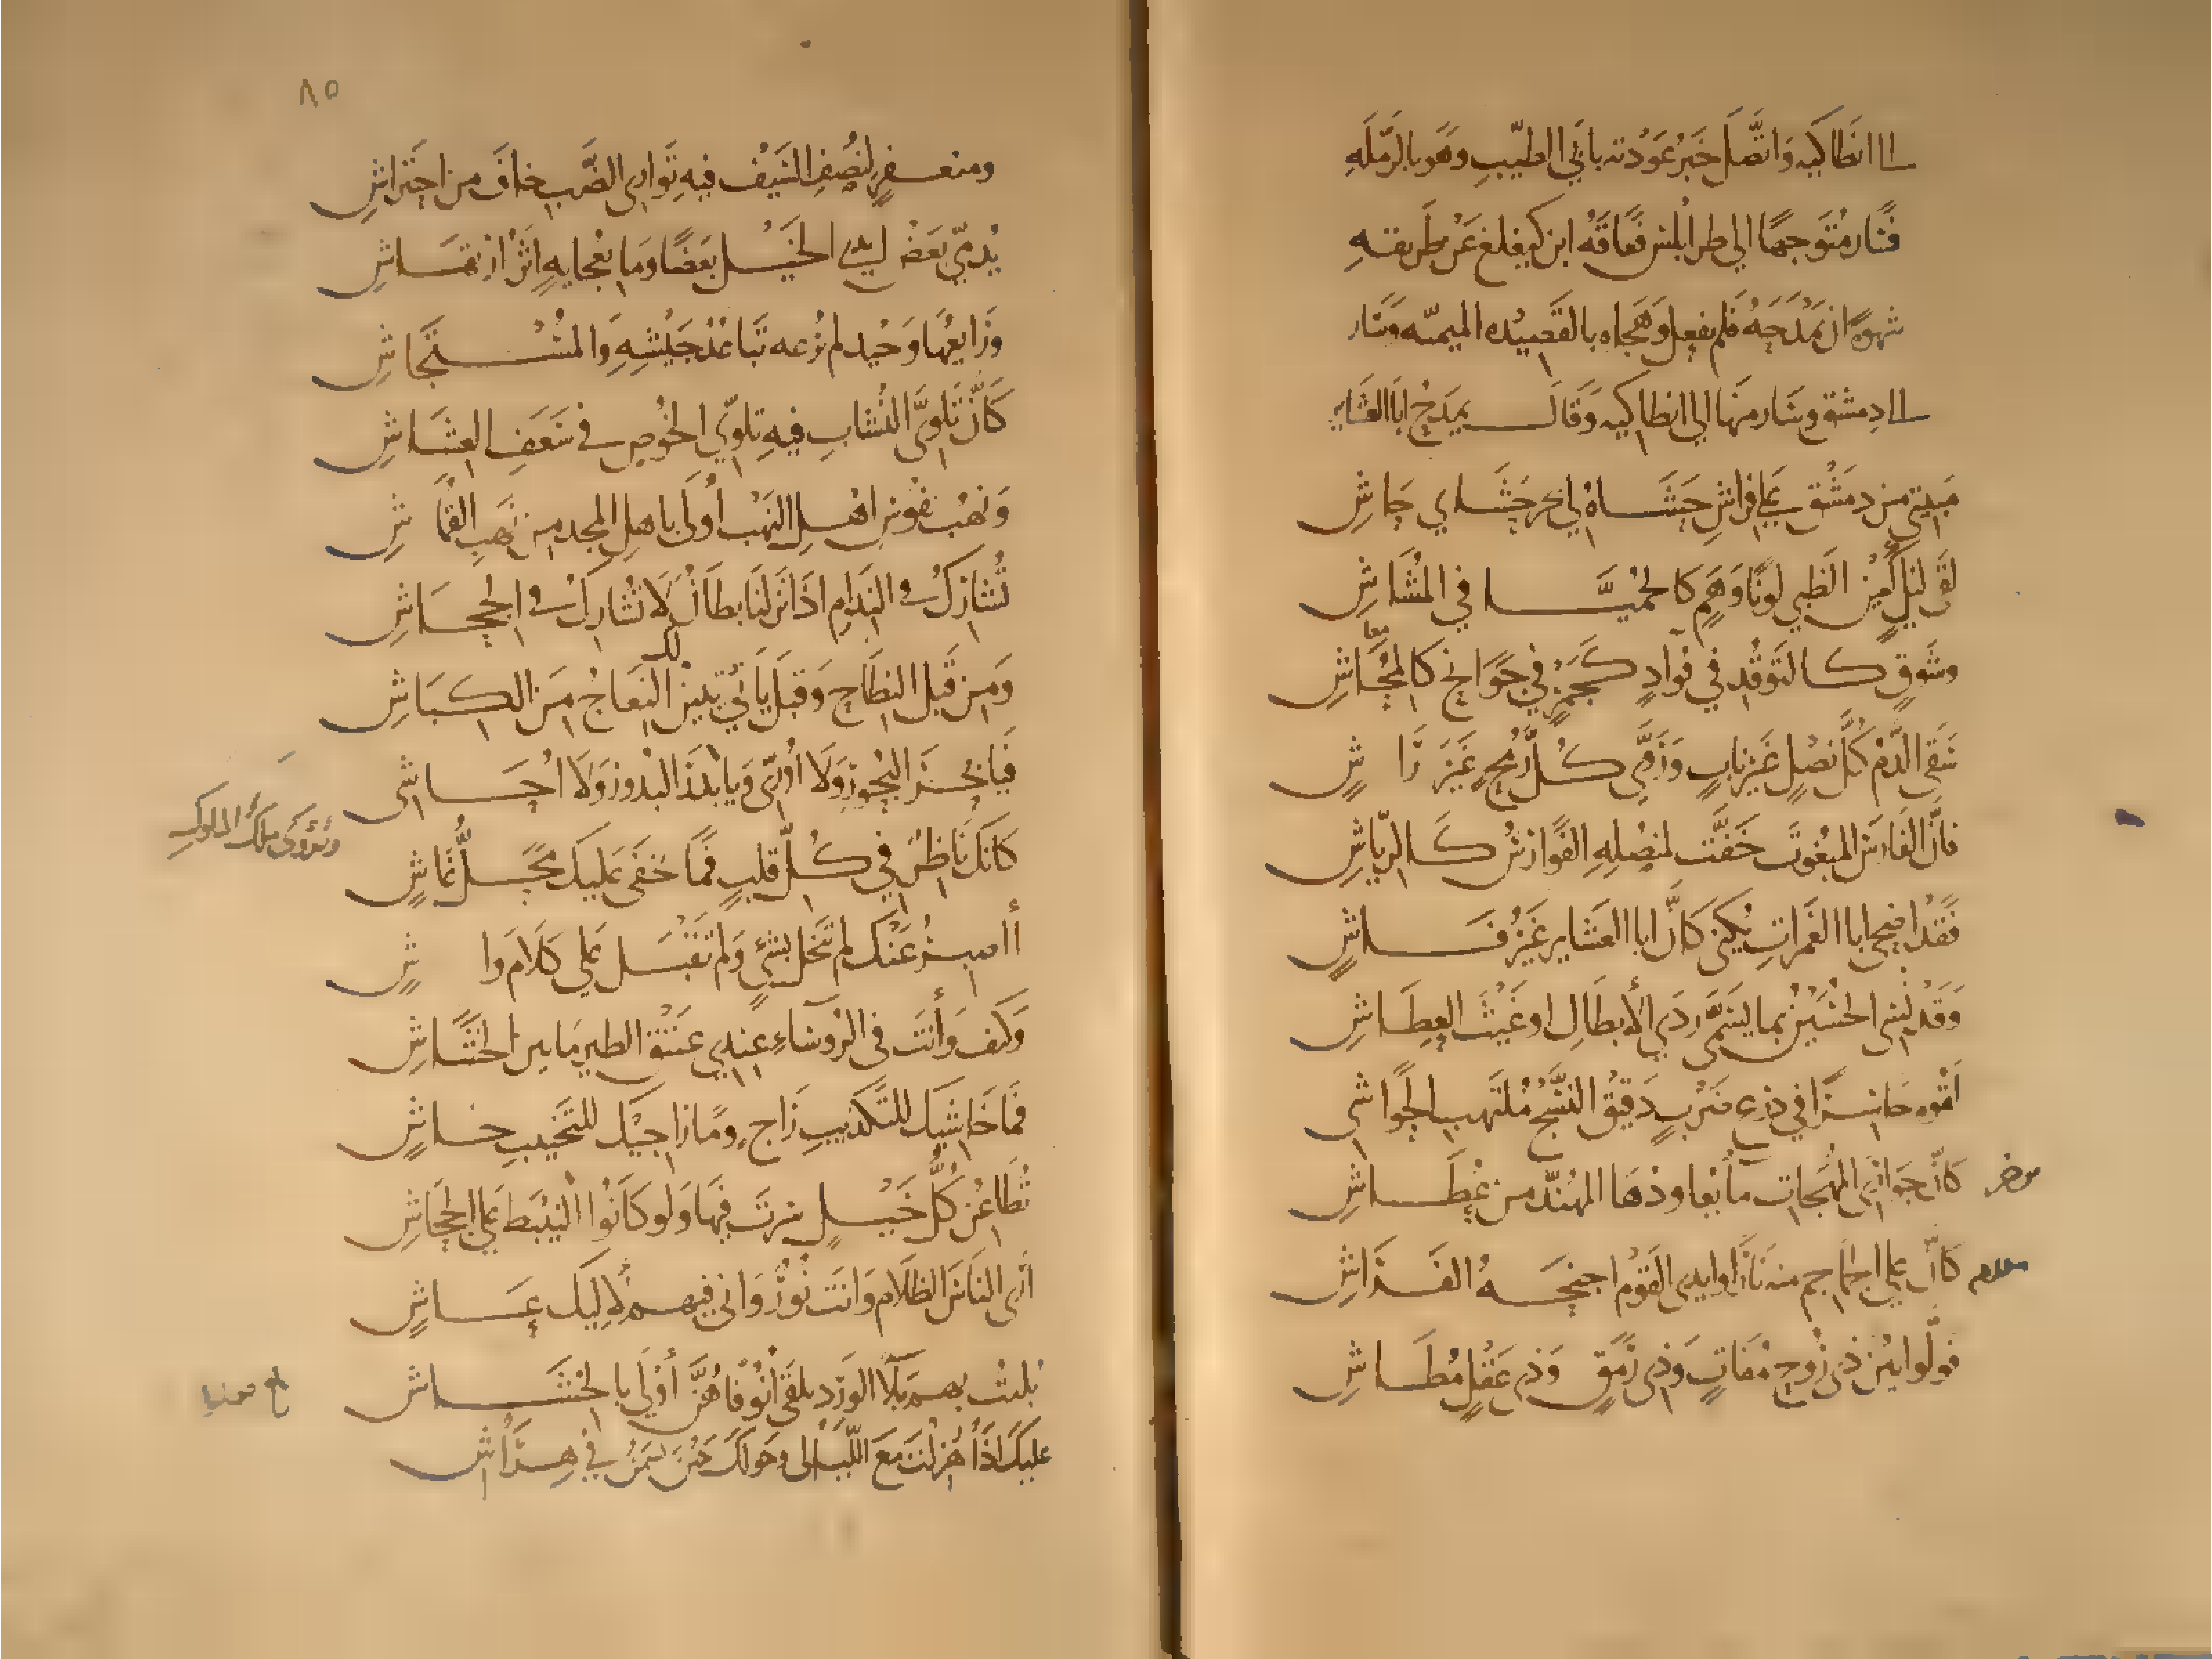 الى انطاكيه وَاتَّصَلَ خَبَرُ عَوْدَته بابي الطيّبِ وهو بالرَّملَهِ
فسَار مُتَوَجهًا الى طرابلس فعَاقَه ابن كيغلغ عَن طَريقهِ
شهوةً ان يَمْدَحَهُ فلم يفعل وَهَجَاه بالقَصِيْده الميميّه وَسَار
الى دِمشق وسَار منهَا الى انطاكيه وَقَالَ يمدَحُ ابَا العَشَاير
مَبيتى من دمَشْق عَلى فراشِ حَشَاهُ لي بحَر حَشَاي حَاشِ
لَقى لَيْلٍ كَعَيْن الظَبي لونًا وَهَمٍ كَالحُميَّا في المُشَاشِ
وشَوقٍ كالتَوقُّد في فوادٍ كجَمرٍ في جَوَانح كَالمُحَاشِ
معا
سَقَى الدَّمْ كُلَّ نصْلٍ غَير نابٍ وَرَوَّى كُلَّ رُمْحٍ غَيَر رَاشٍ
فانَّ الفَارسَ المبعُوتَ خَفَّت لمنصُلِهِ الفَوَارسُ كَالرّيَاشِ
فَقَدْ اضحى ابا الغَمرَاتِ يُكنَى كَانَّ ابا العَشَاير غَيرُ فَاشٍ
وَقَدْ نُسِى الحُسَيْنُ بما يُسَمَّى رَدَي الأبطَالِ او غَيْثَ العِطَاشِ
لَقُوه حَاسرًا في درْع ضَرْبٍ دَقيقِ النَّسْجِ مُلتَهب الحَوَاشى
كَانّ عَلى الجمَاجم منه نَارًا وايدى القَوْم اجنحَهُ الفَرَاشِ
كَانّ جَوَارىَ المُهَجَات مآءٌ يعَاودُهَا المهَنَّد من عُطَاشِ
فَولّوا بَيْنَ ذى رُوحٍ مُفَاتٍ وَذى رَمَقٍ وَذى عَقْلٍ مُطَاشِ
٨٥
ومنعفرٍ لنَصْلِ السَيْف فيه تَوَارى الضَّب خافَ من احْتراشِ
يُدمّي بَعضُ ايدى الخَيْل بَعضًا ومَا بعُجايهٍ اثَرُ ارْتهَاشِ
وَرَايعُهَا وَحْيد لم يَرُعه تَبَاعدُ جَيْشِهِ وَالمُسْتَجَاشِ
كَانَّ تَلوىَّ النُشَّابِ فيهِ تلوّي الخُوصِ في سَعَفِ العِشَاشِ
وَنَهْبُ نفُوسِ اهْلِ النَهْب أولى باهلِ المجد من نَهَبِ القُمَاشِ
تُشَاركُ في النِدَامِ اذَا نَزلنَا بطَانٌ لا تُشَاركُ في الجحَاشِ
وَمِن قَبل النطَاحِ وَقبَلَ يَأنى تَبينُ لك النعَاجُ مَن الكبَاشِ
فَيَا بحرَ البُحُورِ وَلا أوَرّى وَيا بَدرَ البُدورِ وَلا احَاشى
ويُروَى مَلكَ الملوكِ
كَانّكَ نَاظرٌ في كُلّ قلبٍ فَمَا يخفَى عَليك محَلُّ غَاشٍ
أاصبرُ عَنْك لم تَبْخَل بشئٍ وَلم تَقْبَل عَلي كَلامَ وَاشٍ
وَكيَف وَأنتَ في الرُوسَاءِ عندِي عَتيقُ الطيرِ مَا بين الخشَاشِ
فَمَا خَاشيكَ للتَّكذيبِ رَاجٍ، ومَا رَاجيكَ للتَخييبِ خَاشٍ
تُطَاعُن كُلُّ خَيْلٍ سرتَ فيهَا وَلو كَانُوا النَبيْط عَلى الجحَاشِ
أرى النَاسَ الظَلامَ وَانتَ نُورٌ وَانى فيهم لاليكَ عَاشٍ
بُليتُ بهم بَلآءَ الوَرْد يلقَى أنُوفًا هُنَّ أوْلَى بالخشَاشِ
عليكَ اذَا هُزلتَ مَعَ اللّيَالى وَحَولَكَ حَينَ تسمَنُ في هِرَاشِ